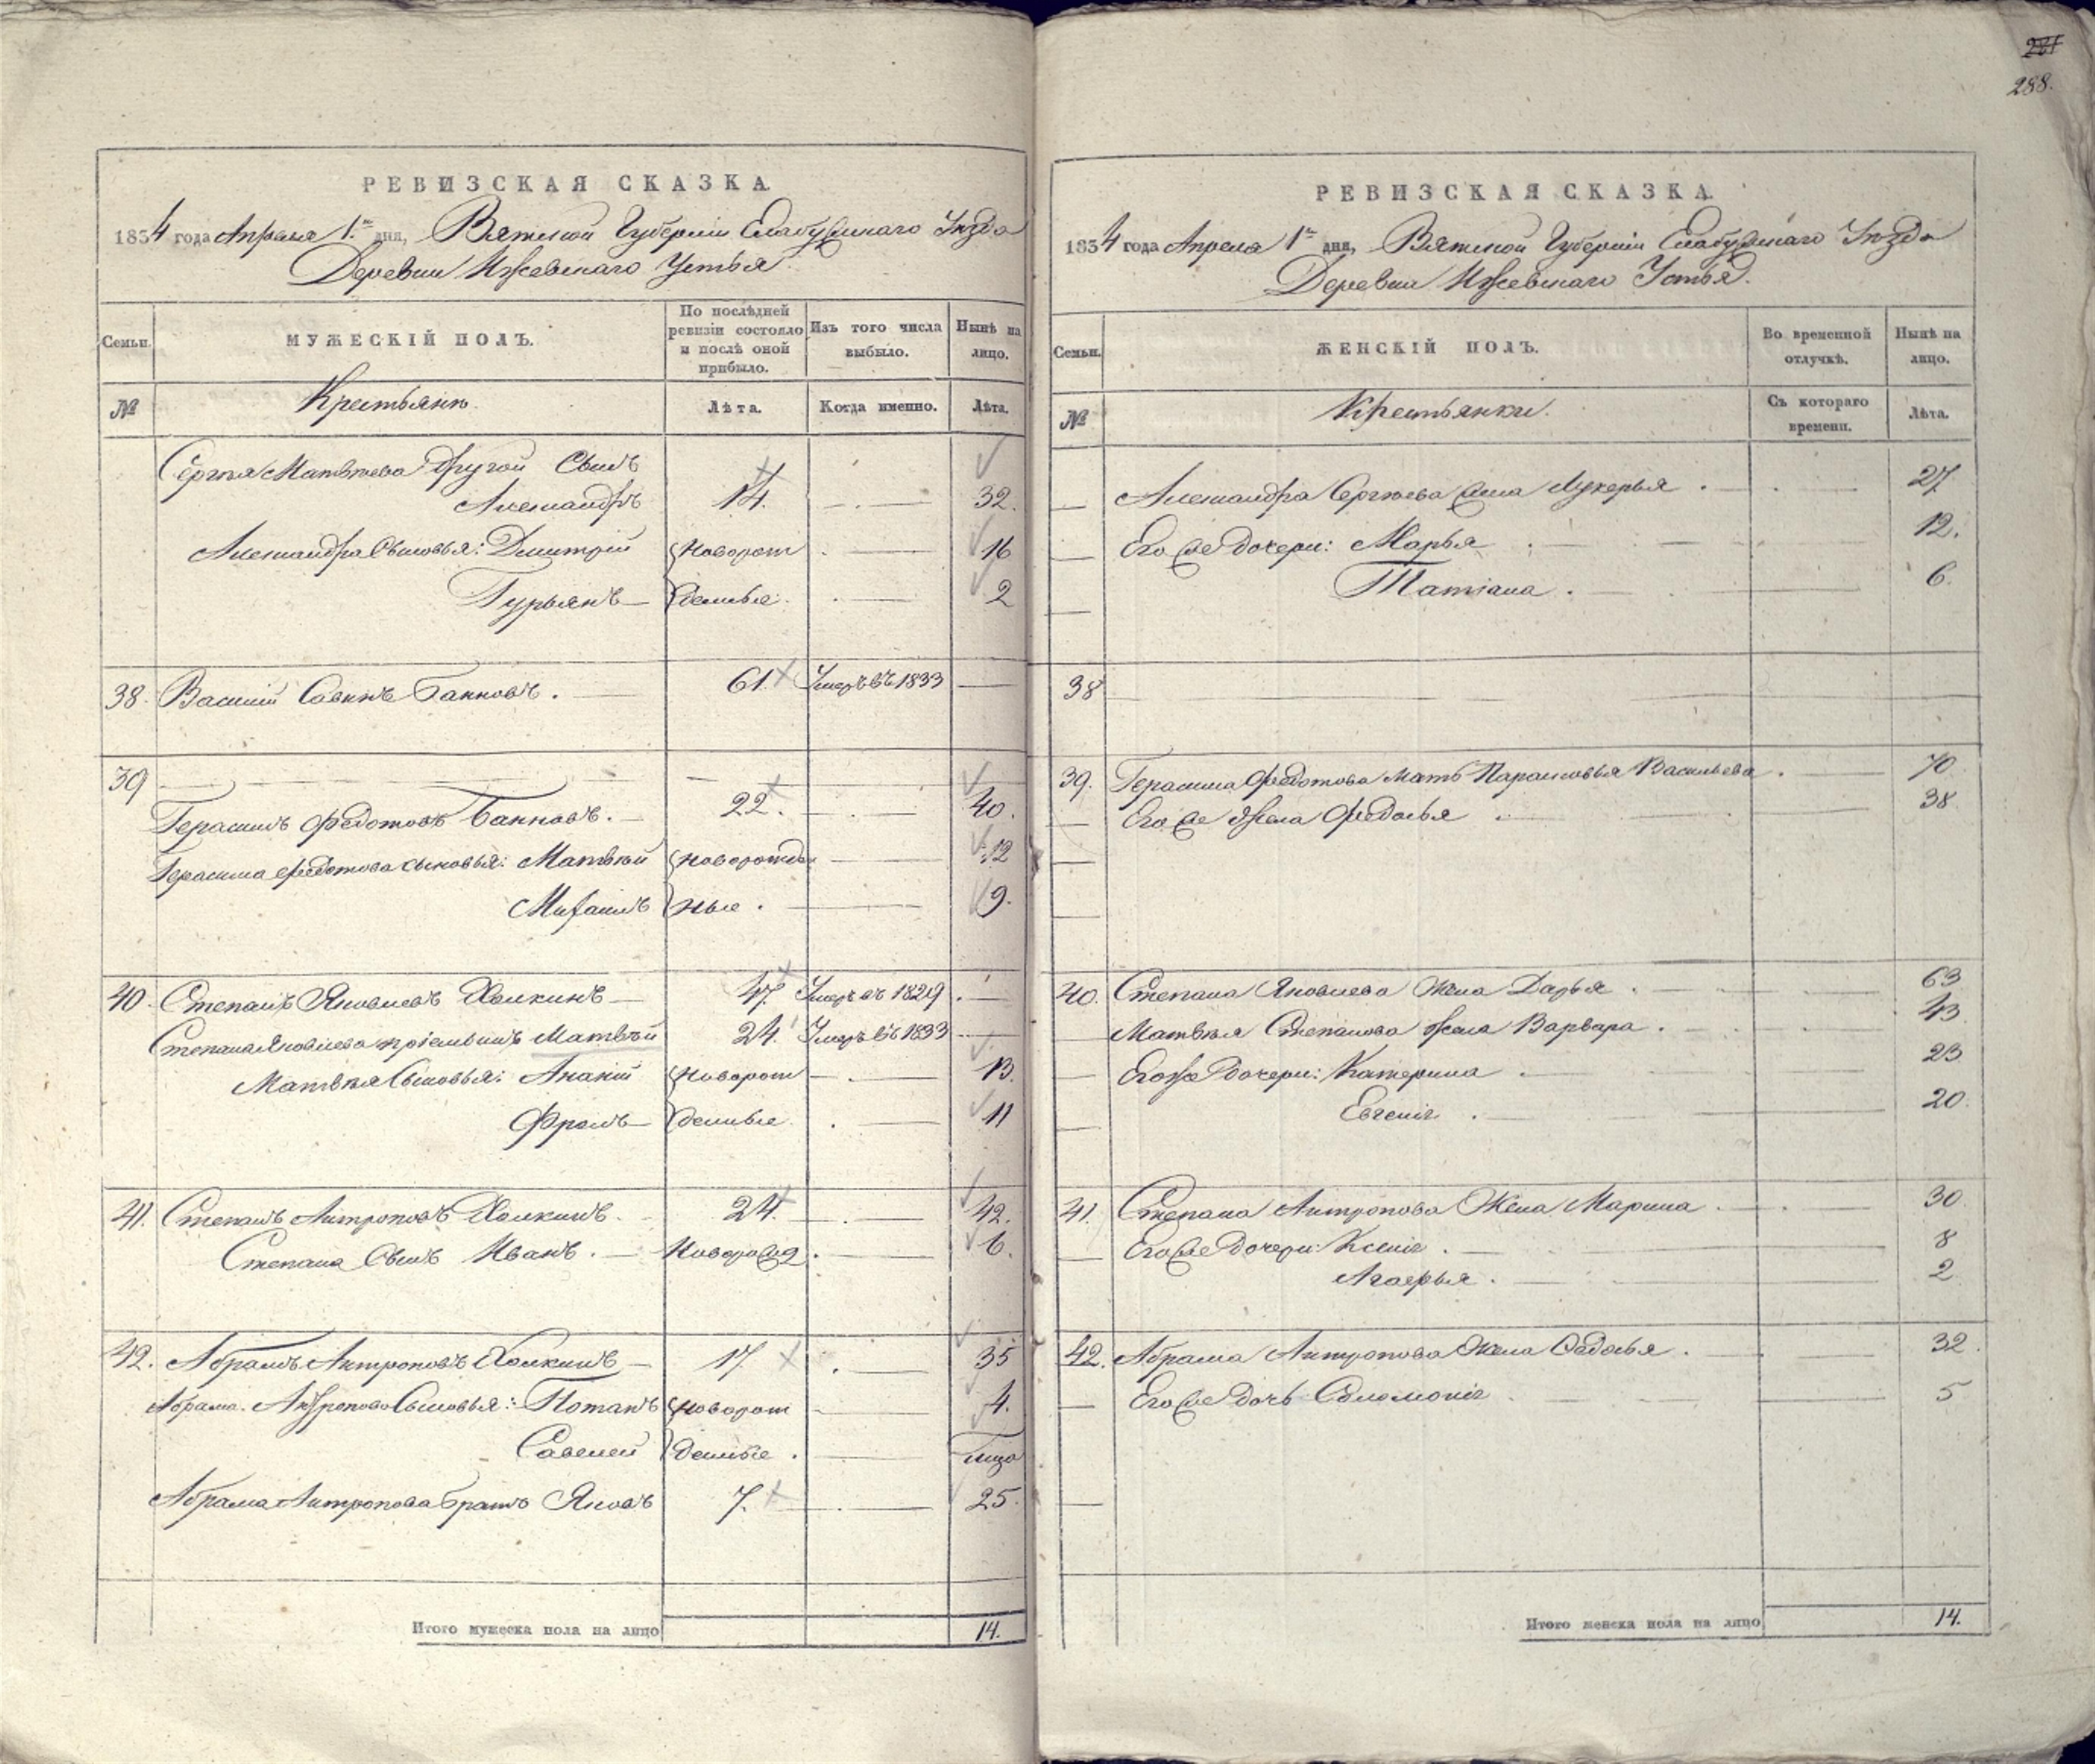 281
288.
РЕВИЗСКАЯ СКАЗКА
1834 года Апреля 1го дня, Вятской Губернии Елабужскаго Уѣзда
Деревни Ижевскаго Устья
Семьи.
МУЖЕСКІЙ ПОЛЪ.
По послѣдней ревизіи состояло и послѣ оной прибыло.
Изъ того числа выбыло.
Нынѣ на лицо.
№
Крестьяне
Лѣта.
Когда именно.
Лѣта.
Сергѣя Матвѣева другой Сынъ
Александръ 14. 32.
Александра Сыновья: Дмитрій новорож 16
Гурьянъ денные. 2
38. Василій Савинъ Банновъ. 61. Умеръ въ 1833
39
Герасимъ Федотовъ Банновъ. 22. 40.
Герасима Федотова сыновья: Матвѣй новорожден 12
Михаилъ ные. 9.
40. Степанъ Яковлевъ Холкинъ 47. Умеръ въ 1829.
Степана Яковлева пріемышъ Матвѣй 24. Умеръ въ 1833
Матвѣя Сыновья: Ананій новорож 13.
Фролъ денные 11
41. Степанъ Антроповъ Холкинъ. 24. 42.
Степана Сынъ Иванъ. Новорожд. 6.
42. Абрамъ Антроповъ Холкинъ 17. 35
Абрама Антропова Сыновья: Потапъ новорож 4.
Савелей денные.
Абрама Антропова братъ Яковъ 7. 25.
Итого мужеска пола на лицо 14.
РЕВИЗСКАЯ СКАЗКА.
1834 года Апреля 1го дня, Вятской Губерніи Елабужскаго Уѣзда
Деревни Ижевскаго Устья.
Семьи.
ЖЕНСКІЙ ПОЛЪ.
Во временной отлучкѣ.
Нынѣ на лицо.
№
Крестьянки.
Съ котораго времени.
Лѣта.
Александра Сергѣева жена Лукерья. 27
Его же дочери: Марья 12.
Татіана. 6.
38
39. Герасима Федотова мать Парасковья Васильева. 70
Его же жена Федосья 38
40. Степана Яковлева жена Дарья. 63
Матвѣя Степанова жена Варвара. 43
Его же дочери: Катерина 23
Евгенія. 20
41. Степана Антропова жена Марина. 30
Его же дочери: Ксенія. 8
Агафья. 2
42. Абрама Антропова жена Федосья. 32.
Его же дочь Соломонія 5
Итого женска пола на лицо 14.